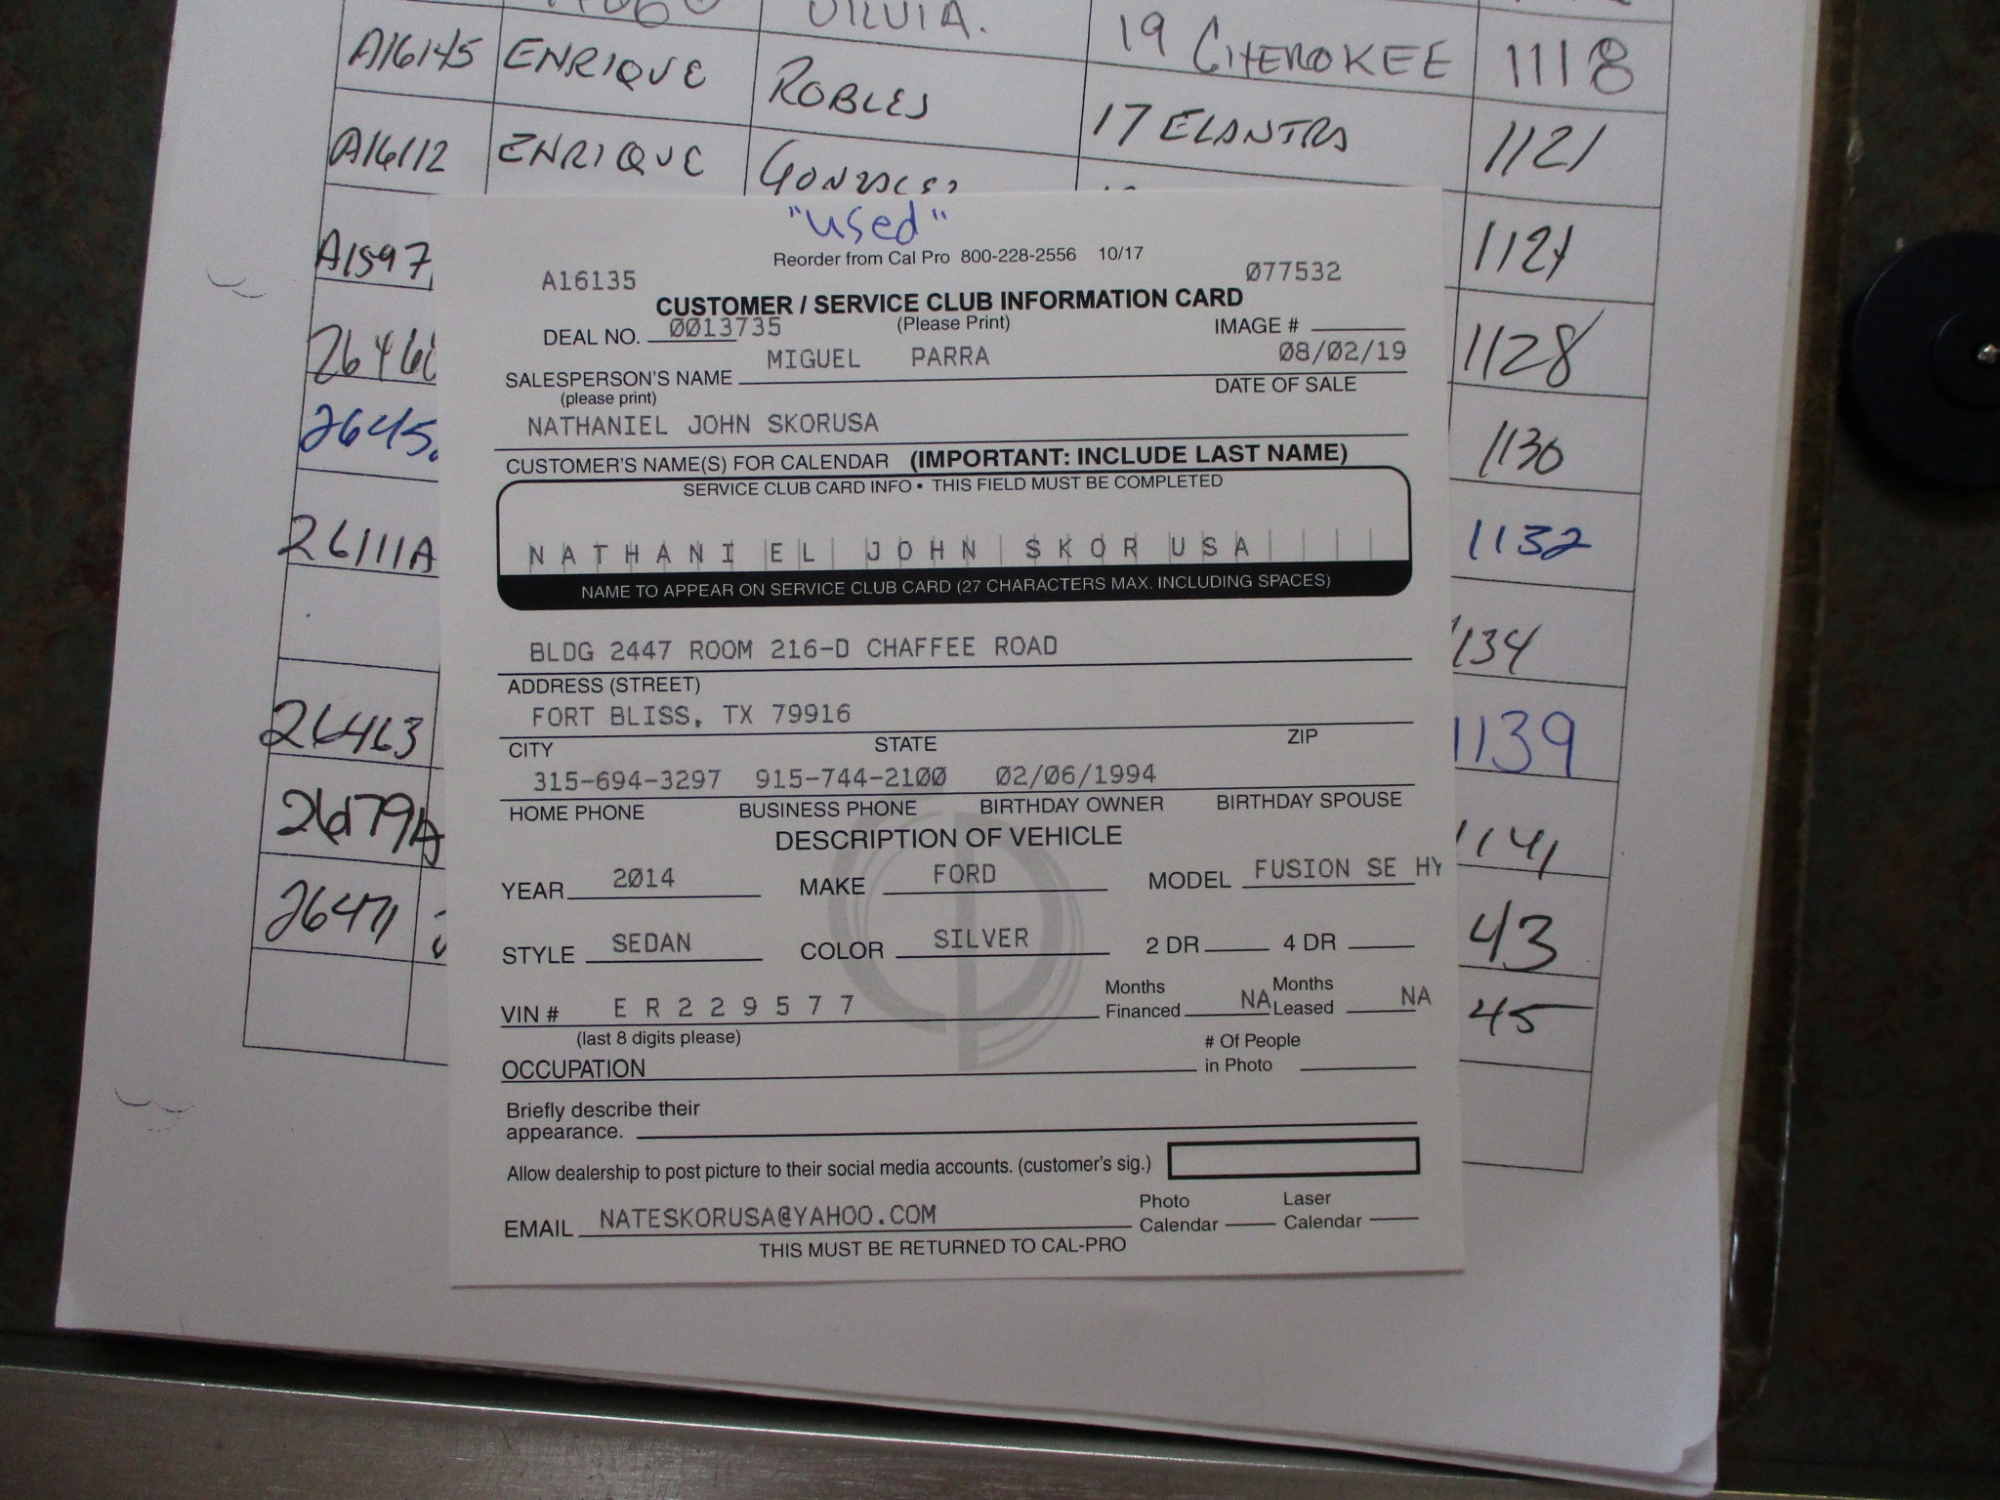 A16145 ENRIQUE ROBLES 19 CHEROKEE 1118
A16112 ENRIQUE GONZALEZ 17 ELANTRA 1121
A1597 1121
26460 1128
2645 1130
26111A 1132
1134
26463 1139
26179A 1141
26471 43
45
"used"
Reorder from Cal Pro 800-228-2556 10/17
A16135 077532
CUSTOMER / SERVICE CLUB INFORMATION CARD
DEAL NO. 0013735 (Please Print) IMAGE #
MIGUEL PARRA 08/02/19
SALESPERSON'S NAME DATE OF SALE
(please print)
NATHANIEL JOHN SKORUSA
CUSTOMER'S NAME(S) FOR CALENDAR (IMPORTANT: INCLUDE LAST NAME)
SERVICE CLUB CARD INFO • THIS FIELD MUST BE COMPLETED
NATHANIEL JOHN SKORUSA
NAME TO APPEAR ON SERVICE CLUB CARD (27 CHARACTERS MAX. INCLUDING SPACES)
BLDG 2447 ROOM 216-D CHAFFEE ROAD
ADDRESS (STREET)
FORT BLISS, TX 79916
CITY STATE ZIP
315-694-3297 915-744-2100 02/06/1994
HOME PHONE BUSINESS PHONE BIRTHDAY OWNER BIRTHDAY SPOUSE
DESCRIPTION OF VEHICLE
YEAR 2014 MAKE FORD MODEL FUSION SE HY
STYLE SEDAN COLOR SILVER 2 DR 4 DR
VIN # ER229577 Months Financed NA Months Leased NA
(last 8 digits please)
OCCUPATION # Of People in Photo
Briefly describe their
appearance.
Allow dealership to post picture to their social media accounts. (customer's sig.)
EMAIL NATESKORUSA@YAHOO.COM Photo Calendar Laser Calendar
THIS MUST BE RETURNED TO CAL-PRO